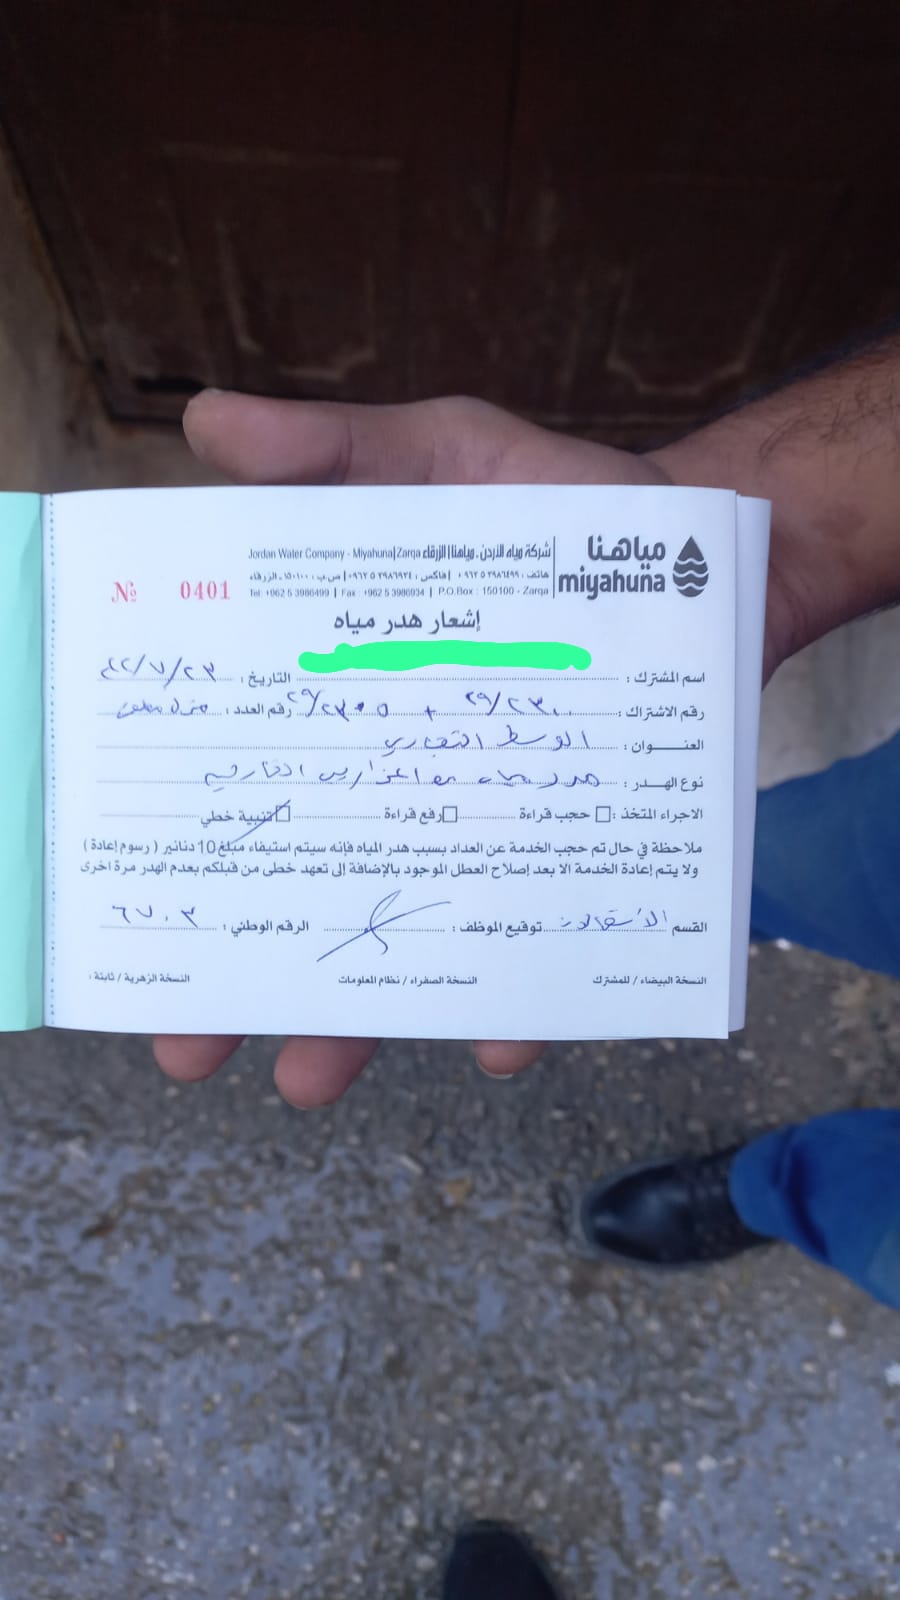 مياهنا
miyahuna
شركة مياه الأردن - مياهنا | الزرقاء Jordan Water Company - Miyahuna|Zarqa
هاتف : ٣٩٨٦٤٩٩ ٥ ٩٦٢+ | فاكس : ٣٩٨٦٩٣٤ ٥ ٩٦٢+ | ص.ب : ١٥٠١٠٠ - الزرقاء
Tel: +962 5 3986499 | Fax : +962 5 3986934 | P.O.Box : 150100 - Zarqa
№ 0401
إشعار هدر مياه
اسم المشترك : التاريخ : ٢٣/٧/
رقم الاشتراك : ٢٩/٢٣٠٠ + ٢٩/٢٣٠٥ رقم العدد : منزل مغلق
العنـــوان : الوسط التجاري
نوع الهـدر : هدر مياه
الاجراء المتخذ : حجب قراءة رفع قراءة تنبية خطي
ملاحظة في حال تم حجب الخدمة عن العداد بسبب هدر المياه فإنه سيتم استيفاء مبلغ 10 دنانير ( رسوم إعادة )
ولا يتم إعادة الخدمة الا بعد إصلاح العطل الموجود بالإضافة إلى تعهد خطى من قبلكم بعدم الهدر مرة اخرى
القسم توقيع الموظف : الرقم الوطني : ٦٧٠٣
النسخة البيضاء / للمشترك النسخة الصفراء / نظام المعلومات النسخة الزهرية / ثابتة :